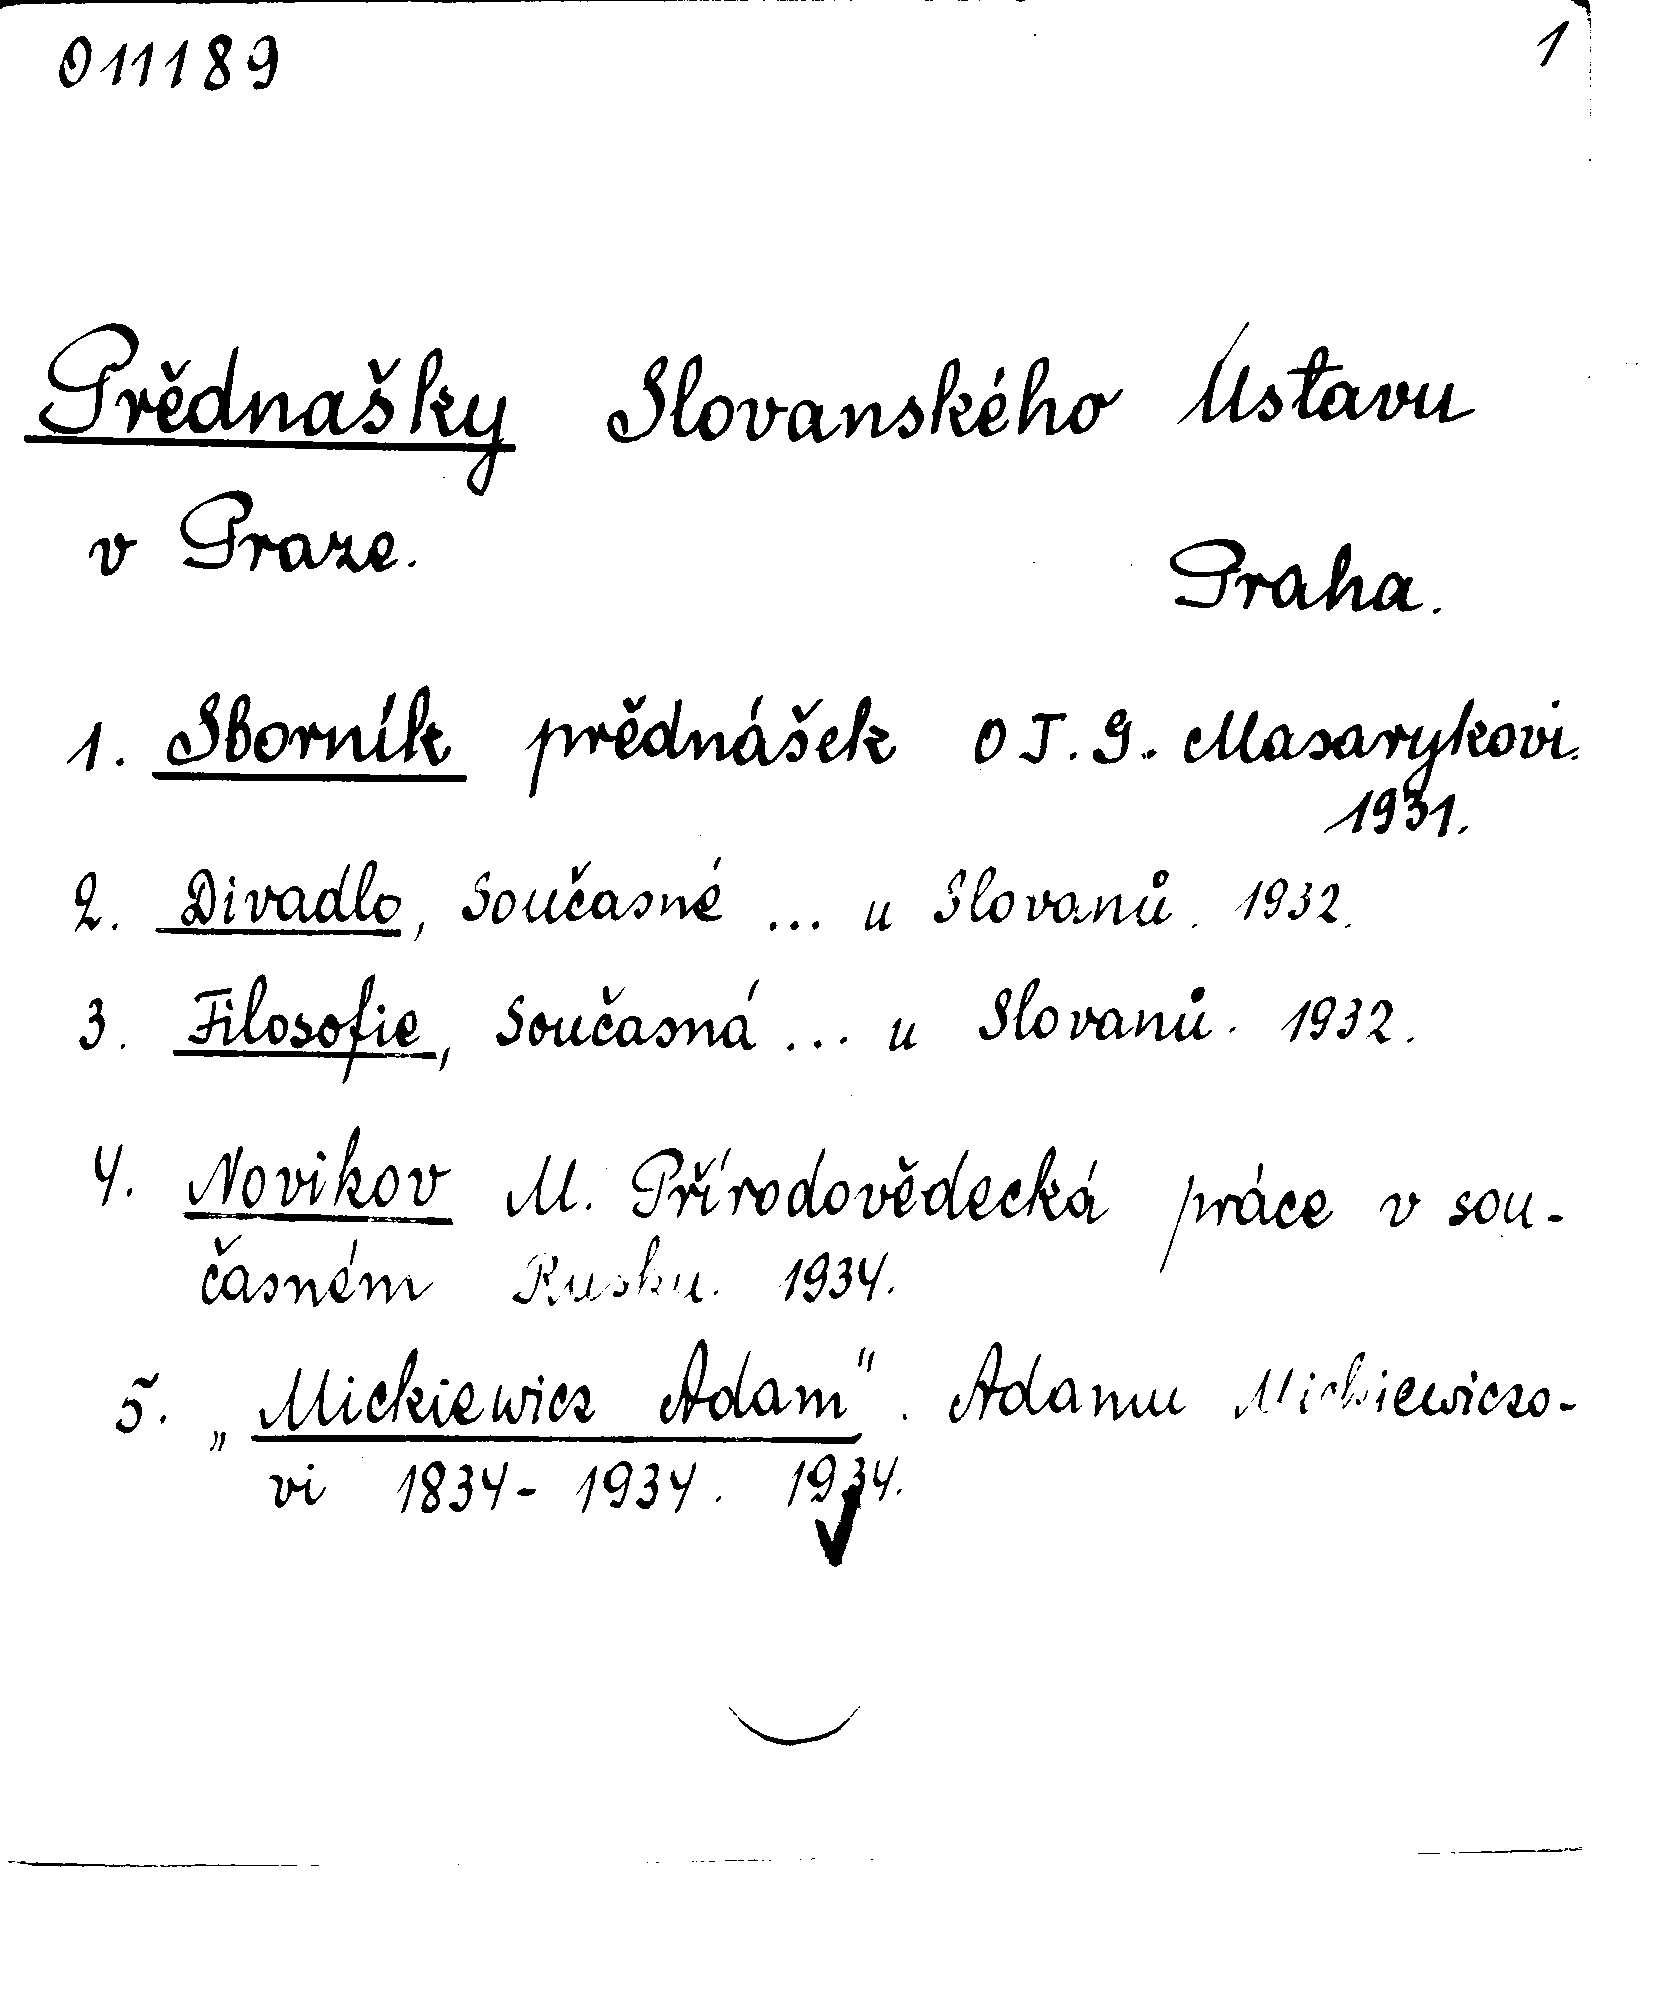 011189 1
Prědnašky Slovanského Ústavu
v Praze.
Praha.
1. Sborník prědnášek o T. G. Masarykovi.
1931.
2. Divadlo, Současné ... u Slovanů. 1932.
3. Filosofie, Současná ... u Slovanů. 1932.
4. Novikov M. Přírodovědecká práce v sou-
časném Rusku. 1934.
5. „Mickiewicz Adam". Adamu Mickiewiczo-
vi 1834-1934. 1934.